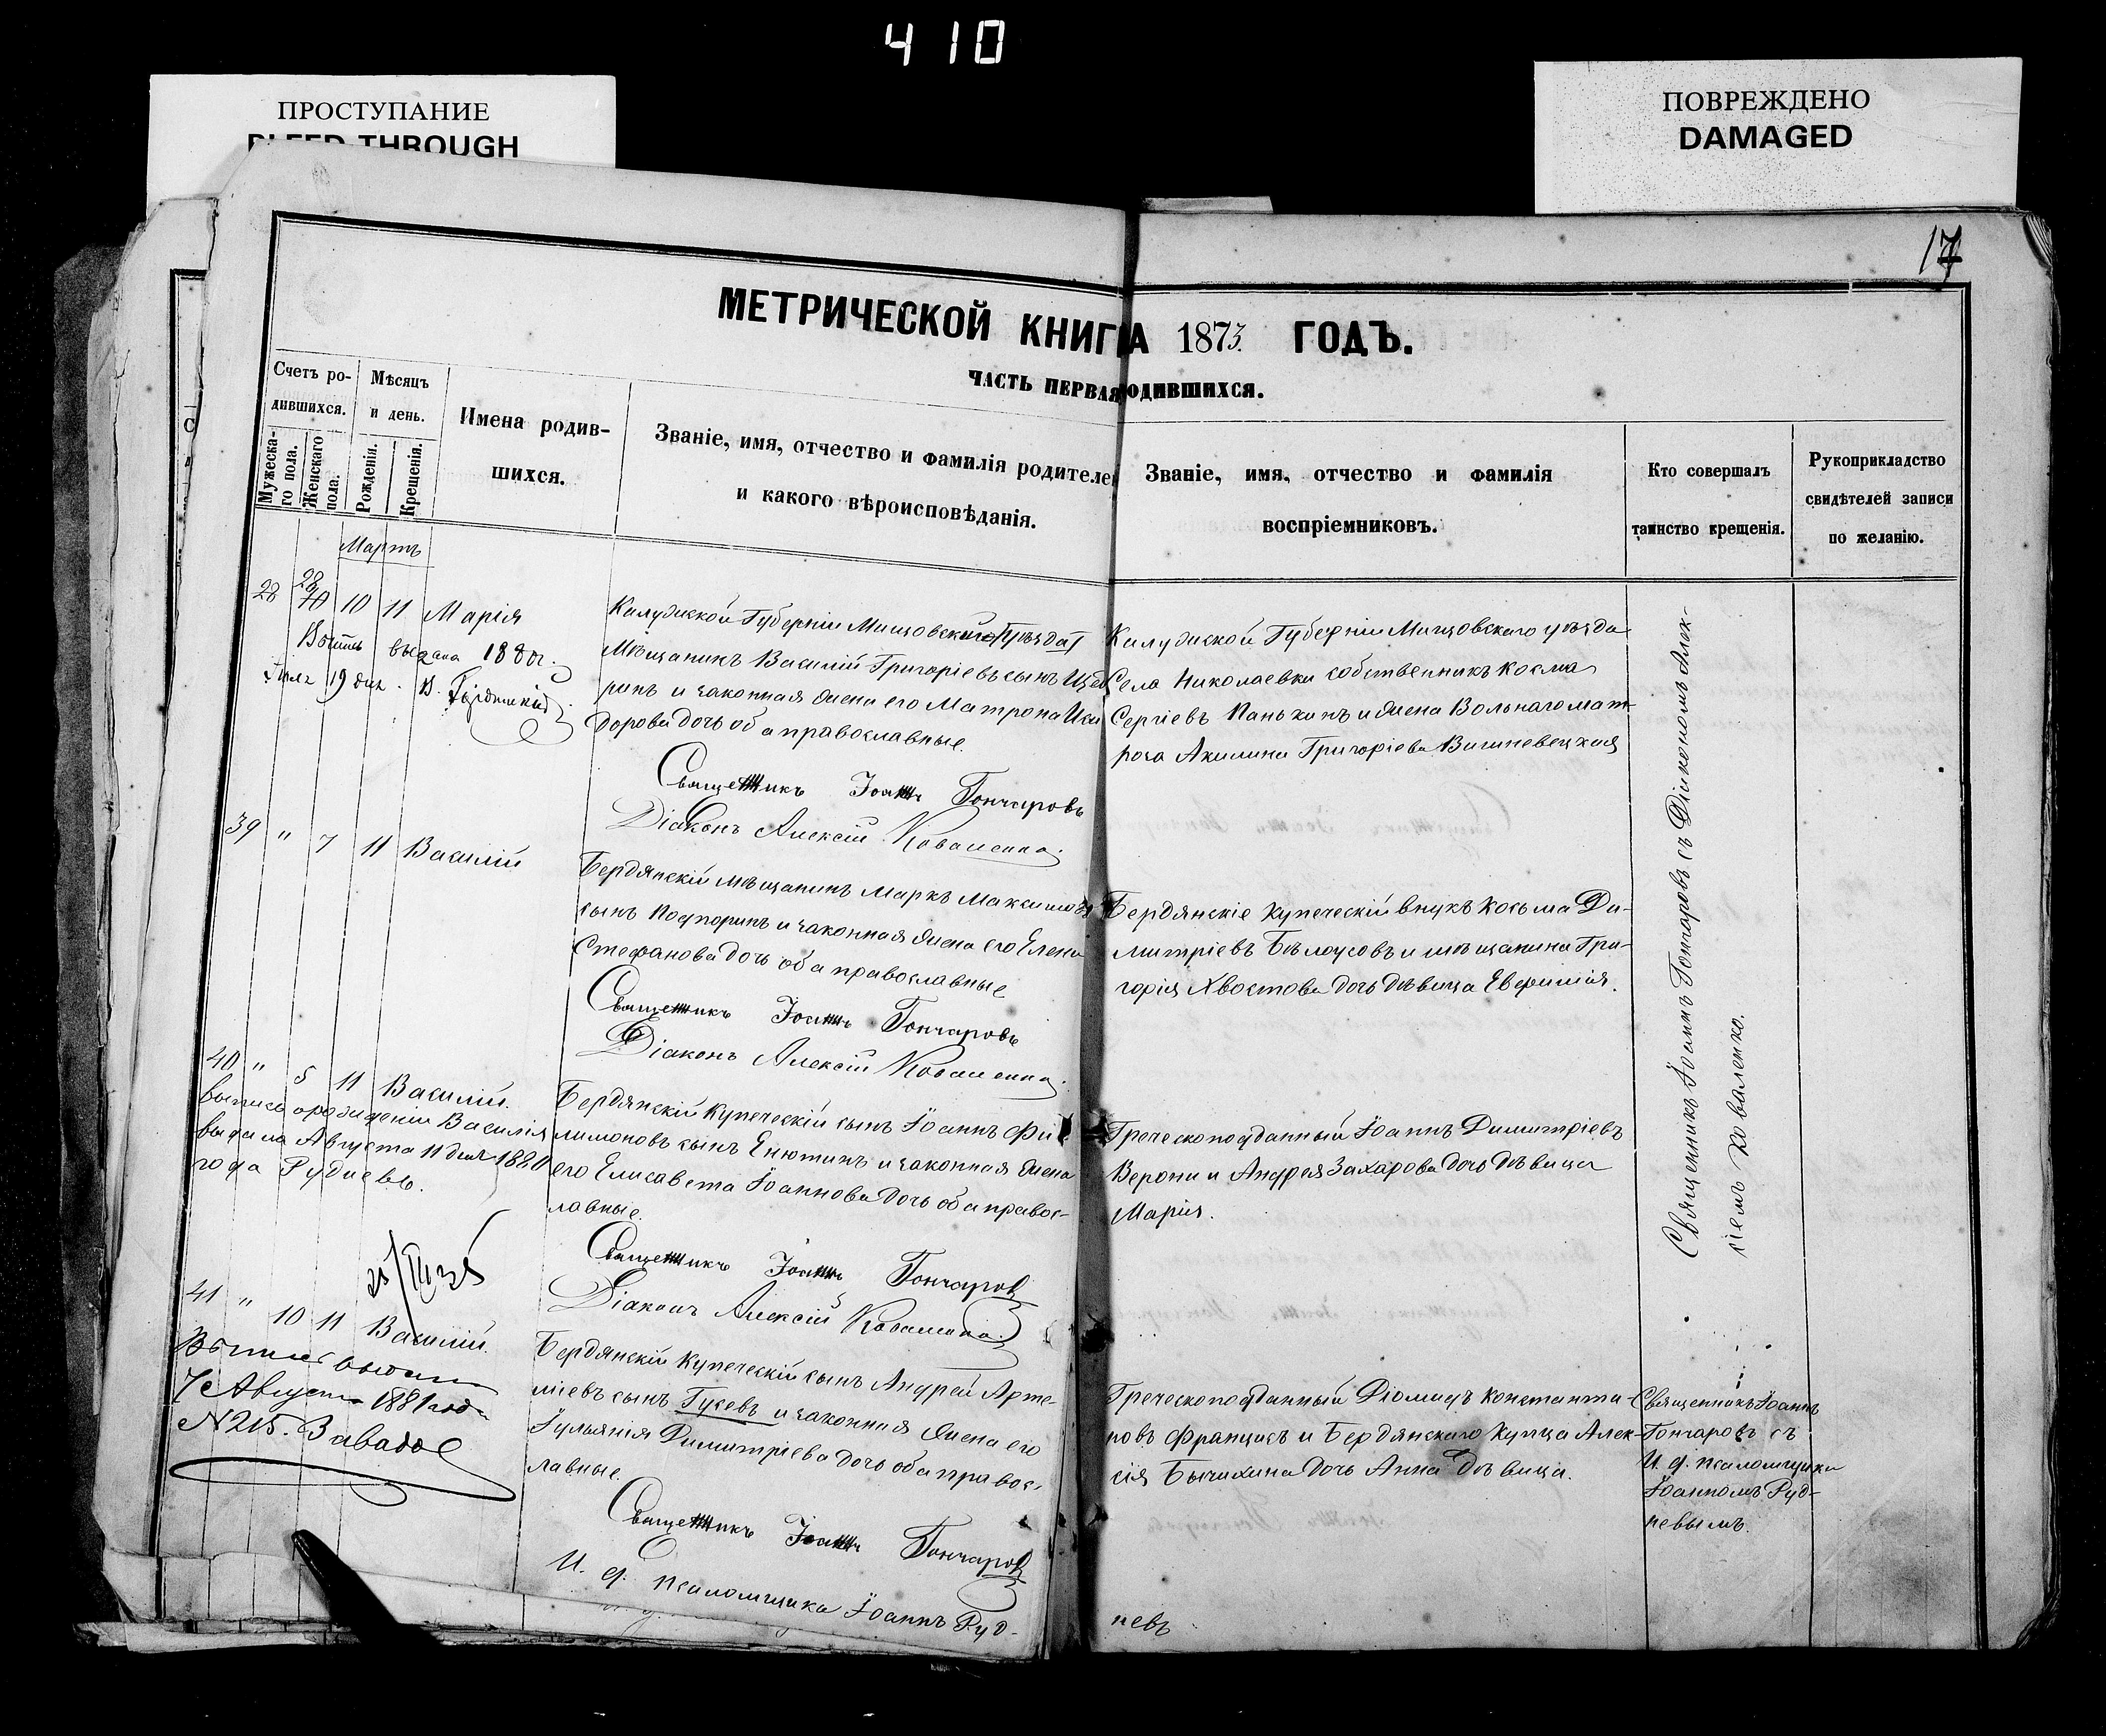 410
ПРОСТУПАНИЕ
BLEED THROUGH
ПОВРЕЖДЕНО
DAMAGED
17
МЕТРИЧЕСКОЙ КНИГИ НА 1873 ГОДЪ.
ЧАСТЬ ПЕРВАЯ ОДИВШИХСЯ.
Счетъ ро-
дившихся.
Мужеска-
го пола.
Женскаго
пола.
Мѣсяцъ
и день.
Рожденія.
Крещенія.
Имена родив-
шихся.
Званіе, имя, отчество и фамилія родителе
и какого вѣроисповѣданія.
Званіе, имя, отчество и фамилія
воспріемниковъ.
Кто совершалъ
таинство крещенія.
Рукоприкладство
свидѣтелей записи
по желанію.
Мартъ
28 10 11 Марія
выдана 1880г.
19 дня
Калужской Губерніи Мищовскаго Уѣзда
Мѣщанинъ Василій Григоріевъ сынъ
ринъ и законная жена его Матрона
дорова дочь оба православные.
Священникъ Іоаннъ Гончаровъ
Діаконъ Алексій Коваленко.
Калужской Губерніи Мищовскаго уѣзда
Села Николаевки собственникъ Косма
Сергіевъ Панькинъ и жена Вольнаго мат-
роса Акилина Григоріева Вишневецкая
39 " 7 11 Василій
Бердянскій мѣщанинъ Маркъ Максимовъ
сынъ Подпоринъ и законная жена его Елена
Стефанова дочь оба православные
Священникъ Іоаннъ Гончаровъ
Діаконъ Алексій Коваленко.
Бердянскіе купеческій внукъ Косьма Ди-
митріевъ Бѣлоусовъ и мѣщанина Гри-
горія Хвостова дочь дѣвица Евфимія.
40 " 5 11 Василій.
выпись о рожденіи Василія
выдана Августа 11 дня 1880
года Рудневъ.
Бердянскій Купеческій сынъ Іоаннъ Фи-
лимоновъ сынъ Енютинъ и законная жена
его Елисавета Іоаннова дочь оба правос-
лавные.
Священникъ Іоаннъ Гончаровъ
Діаконъ Алексій Коваленко.
Греческоподданный Іоаннъ Димитріевъ
Верони и Андрея Захарова дочь дѣвица
Марія.
Священникъ Іоаннъ Гончаровъ съ Діакономъ Алек-
сіемъ Коваленко.
41 " 10 11 Василій.
7 Августа 1881 года
N 215. Завадов
Бердянскій Купеческій сынъ Андрей Арте-
міевъ сынъ Гусевъ и законная жена его
Іульянія Димитріева дочь оба правос-
лавные.
Священникъ Іоаннъ Гончаровъ
И. д. псаломщика Іоаннъ Руд-
невъ
Греческоподданный Діомидъ Константи-
новъ Францисъ и Бердянскаго Купца Алек-
сія Бычихина дочь Анна дѣвица.
Священникъ Іоаннъ
Гончаровъ съ
И. д. псаломщика
Іоанномъ Руд-
невымъ.